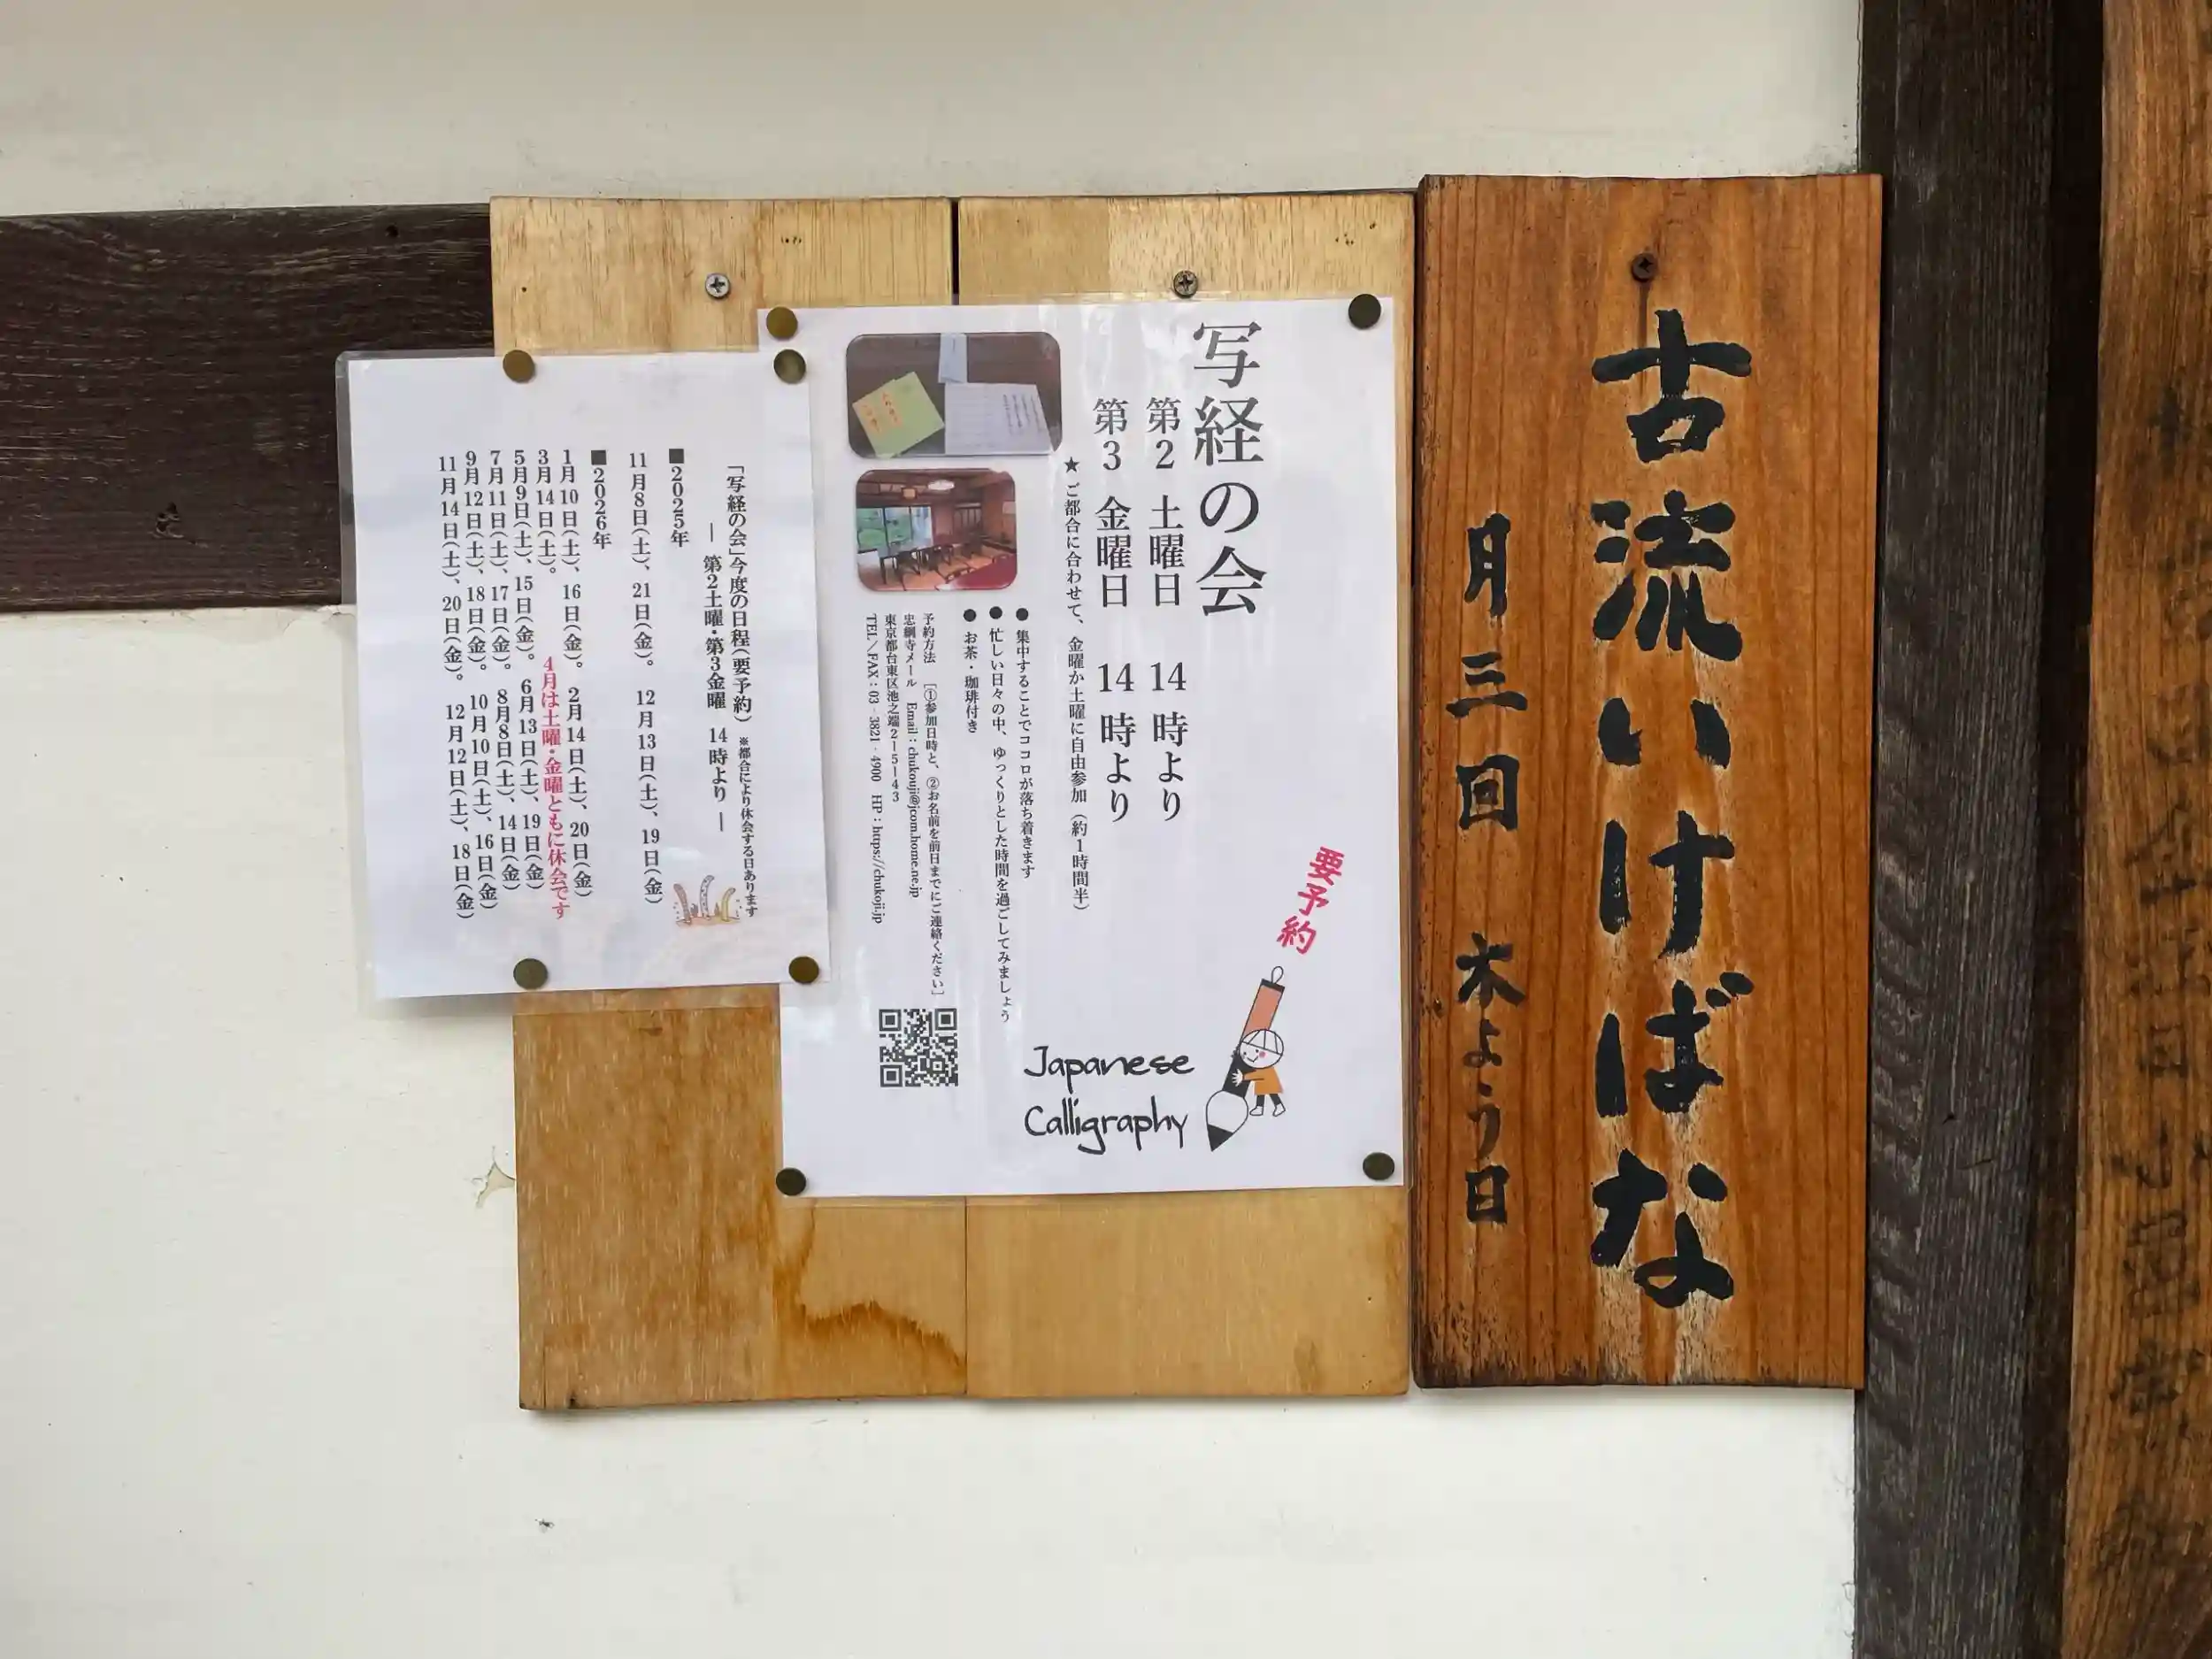 古流いけばな
月三回 木よう日
写経の会
第2 土曜日 14時より
第3 金曜日 14時より
★ご都合に合わせて、金曜か土曜に自由参加（約1時間半）
要予約
●集中することでココロが落ち着きます
●忙しい日々の中、ゆっくりとした時間を過ごしてみましょう
●お茶・珈琲付き
予約方法 ［①参加日時と、②お名前を前日までにご連絡ください］
忠綱寺メール Email：chukouji@jcom.home.ne.jp
東京都台東区池之端2-5-43
TEL／FAX：03-3821-4900 HP：https://chukoji.jp
Japanese
Calligraphy
「写経の会」今度の日程（要予約） ※都合により休会する日あります
― 第2土曜・第3金曜 14時より ―
■2025年
11月8日（土）、21日（金）。 12月13日（土）、19日（金）
■2026年
1月10日（土）、16日（金）。 2月14日（土）、20日（金）
3月14日（土）。 4月は土曜・金曜ともに休会です
5月9日（土）、15日（金）。 6月13日（土）、19日（金）
7月11日（土）、17日（金）。 8月8日（土）、14日（金）
9月12日（土）、18日（金）。 10月10日（土）、16日（金）
11月14日（土）、20日（金）。 12月12日（土）、18日（金）